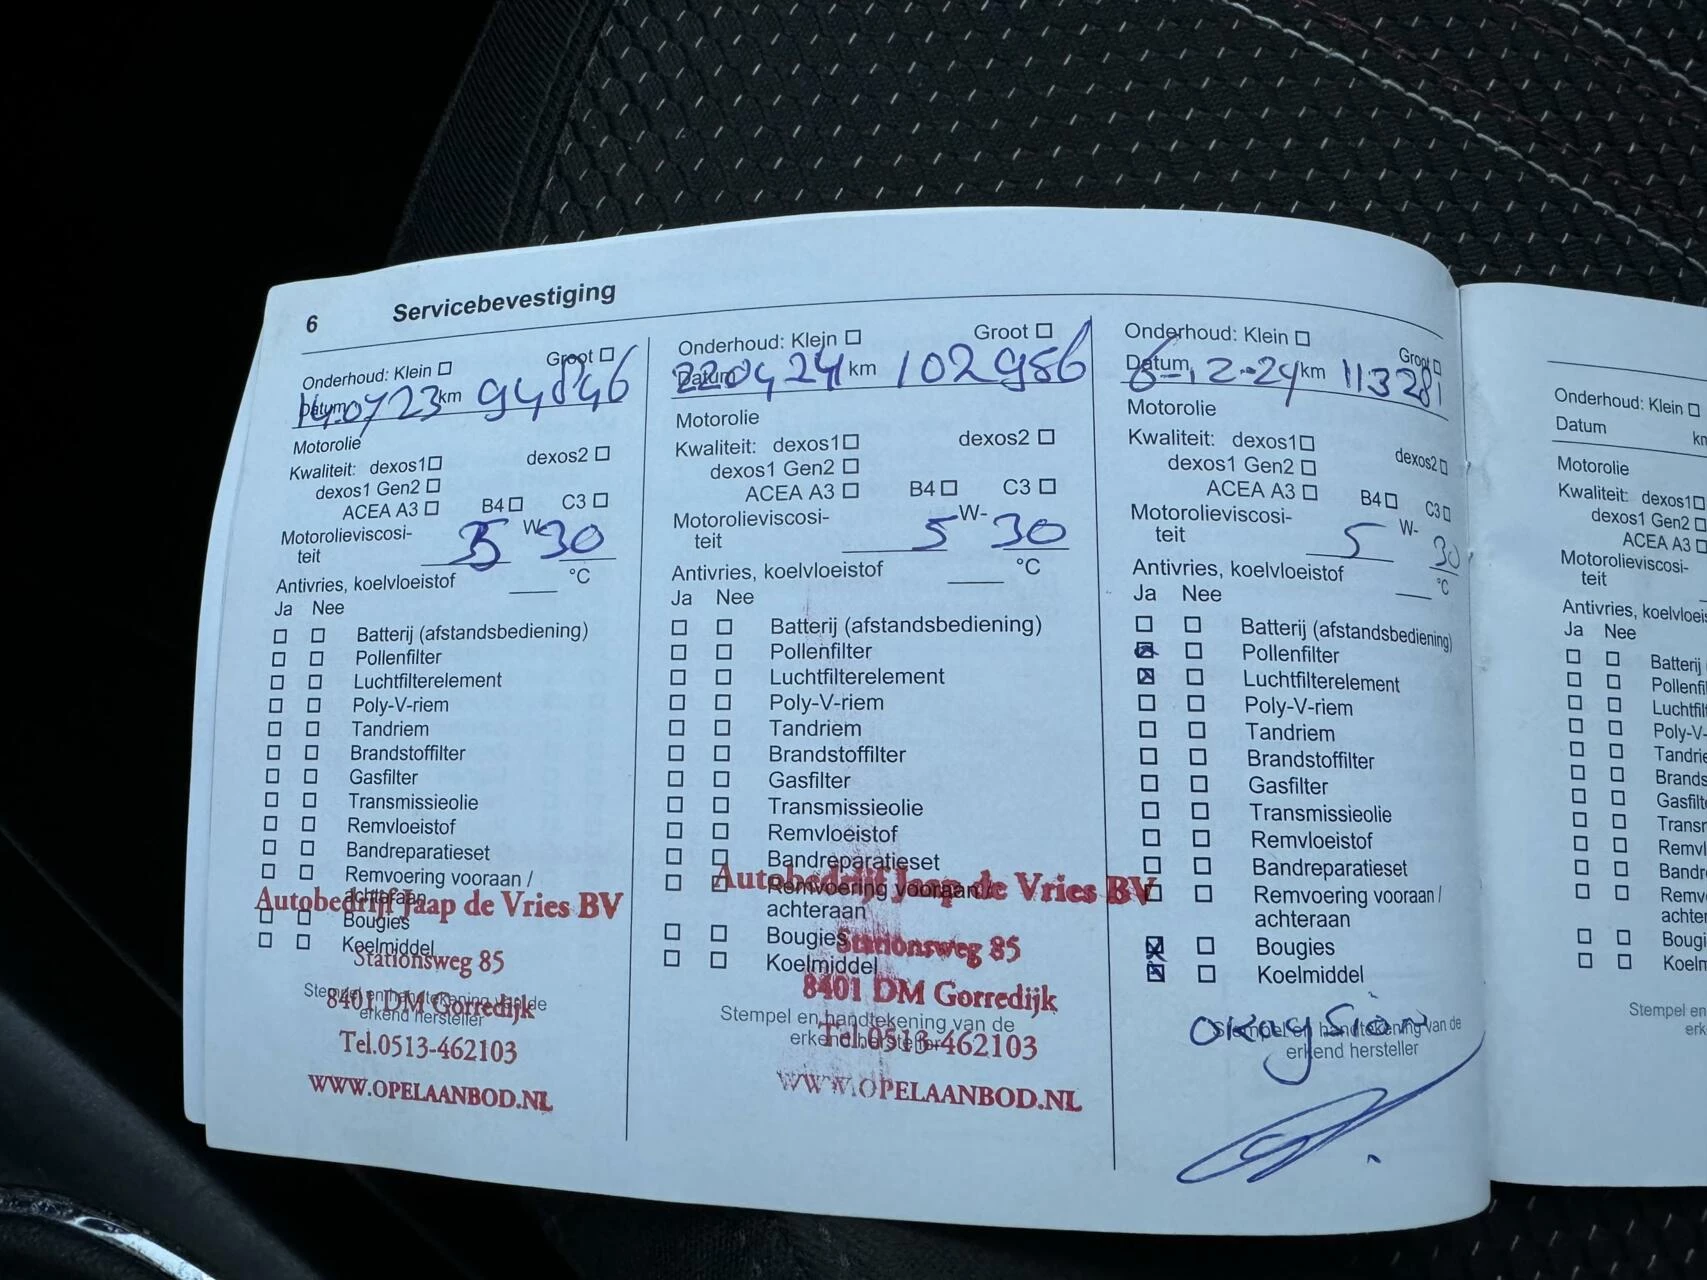 6 Servicebevestiging
Onderhoud: Klein ☐ Groot ☐
Datum 14.07.23 km 94846
Motorolie
Kwaliteit: dexos1 ☐ dexos2 ☐
dexos1 Gen2 ☐
ACEA A3 ☐ B4 ☐ C3 ☐
Motorolieviscosi-
teit 5 W- 30
Antivries, koelvloeistof ____ °C
Ja Nee
☐ ☐ Batterij (afstandsbediening)
☐ ☐ Pollenfilter
☐ ☐ Luchtfilterelement
☐ ☐ Poly-V-riem
☐ ☐ Tandriem
☐ ☐ Brandstoffilter
☐ ☐ Gasfilter
☐ ☐ Transmissieolie
☐ ☐ Remvloeistof
☐ ☐ Bandreparatieset
☐ ☐ Remvoering vooraan /
achteraan
☐ ☐ Bougies
☐ ☐ Koelmiddel
Stempel en handtekening van de
erkend hersteller
Autobedrijf Jaap de Vries BV
Stationsweg 85
8401 DM Gorredijk
Tel.0513-462103
WWW.OPELAANBOD.NL
Onderhoud: Klein ☐ Groot ☐
Datum 220424 km 102986
Motorolie
Kwaliteit: dexos1 ☐ dexos2 ☐
dexos1 Gen2 ☐
ACEA A3 ☐ B4 ☐ C3 ☐
Motorolieviscosi-
teit 5 W- 30
Antivries, koelvloeistof ____ °C
Ja Nee
☐ ☐ Batterij (afstandsbediening)
☐ ☐ Pollenfilter
☐ ☐ Luchtfilterelement
☐ ☐ Poly-V-riem
☐ ☐ Tandriem
☐ ☐ Brandstoffilter
☐ ☐ Gasfilter
☐ ☐ Transmissieolie
☐ ☐ Remvloeistof
☐ ☐ Bandreparatieset
☐ ☐ Remvoering vooraan /
achteraan
☐ ☐ Bougies
☐ ☐ Koelmiddel
Stempel en handtekening van de
erkend hersteller
Autobedrijf Jaap de Vries BV
Stationsweg 85
8401 DM Gorredijk
Tel.0513-462103
WWW.OPELAANBOD.NL
Onderhoud: Klein ☐ Groot ☐
Datum 6-12-24 km 113281
Motorolie
Kwaliteit: dexos1 ☐ dexos2 ☐
dexos1 Gen2 ☐
ACEA A3 ☐ B4 ☐ C3 ☐
Motorolieviscosi-
teit 5 W- 30
Antivries, koelvloeistof ____ °C
Ja Nee
☐ ☐ Batterij (afstandsbediening)
☒ ☐ Pollenfilter
☒ ☐ Luchtfilterelement
☐ ☐ Poly-V-riem
☐ ☐ Tandriem
☐ ☐ Brandstoffilter
☐ ☐ Gasfilter
☐ ☐ Transmissieolie
☐ ☐ Remvloeistof
☐ ☐ Bandreparatieset
☐ ☐ Remvoering vooraan /
achteraan
☒ ☐ Bougies
☒ ☐ Koelmiddel
OKaySion
Stempel en handtekening van de
erkend hersteller
Onderhoud: Klein ☐
Datum
Motorolie
Kwaliteit: dexos1 ☐
dexos1 Gen2 ☐
ACEA A3 ☐
Motorolieviscosi-
teit
Antivries,
Ja Nee
Stempel en